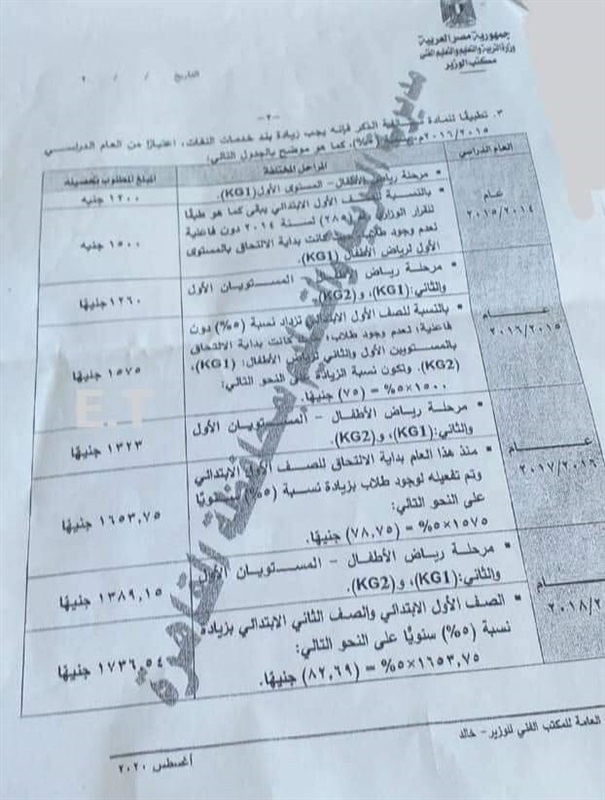 جمهورية مصر العربية
وزارة التربية والتعليم والتعليم الفني
مكتب الوزير
التاريخ / / ٢٠
-٢-
٣. تطبيقًا للمادة الذكر فإنه يجب زيادة بند خدمات اللغات، اعتبارًا من العام الدراسي
٢٠١٦/٢٠١٥م (٥%)، كما هو موضح بالجدول التالي:
العام الدراسي المراحل المختلفة المبلغ المطلوب تحصيله
عام ٢٠١٥/٢٠١٤
• مرحلة رياض الأطفال – المستوى الأول (KG1). ١٢٠٠ جنيه
• بالنسبة للصف الأول الابتدائي يبقى كما هو طبقًا
لقرار الوزاري (٢٨٩) لسنة ٢٠١٤ دون فاعلية
لعدم وجود كانت بداية الالتحاق بالمستوى
الأول لرياض الأطفال (KG1).
١٥٠٠ جنيه
عام ٢٠١٦/٢٠١٥
• مرحلة رياض الأطفال – المستويان الأول
والثاني: (KG1)، و(KG2).
١٢٦٠ جنيهًا
• بالنسبة للصف الأول الابتدائي تزداد نسبة (٥%) دون
فاعلية؛ لعدم وجود طلاب، كانت بداية الالتحاق
بالمستويين الأول والثاني لرياض الأطفال: (KG1)،
(KG2). وتكون نسبة الزيادة على النحو التالي:
١٥٠٠×٥% = (٧٥) جنيهًا.
١٥٧٥ جنيهًا
عام ٢٠١٧/٢٠١٦
• مرحلة رياض الأطفال – المستويان الأول
والثاني: (KG1)، و(KG2).
١٣٢٣ جنيهًا
• منذ هذا العام بداية الالتحاق للصف الأول الابتدائي
وتم تفعيله لوجود طلاب بزيادة نسبة (٥%) سنويًا
على النحو التالي:
١٥٧٥×٥% = (٧٨,٧٥) جنيهًا.
١٦٥٣,٧٥ جنيهًا
عام ٢٠١٨/٢
• مرحلة رياض الأطفال – المستويان الأول
والثاني: (KG1)، و(KG2).
١٣٨٩,١٥ جنيهًا
• الصف الأول الابتدائي والصف الثاني الابتدائي بزيادة
نسبة (٥%) سنويًا على النحو التالي:
١٦٥٣,٧٥×٥% = (٨٢,٦٩) جنيهًا.
١٧٣٦,٥٤ جنيهًا
العامة للمكتب الفني للوزير – خالد
أغسطس ٢٠٢٠
E.T